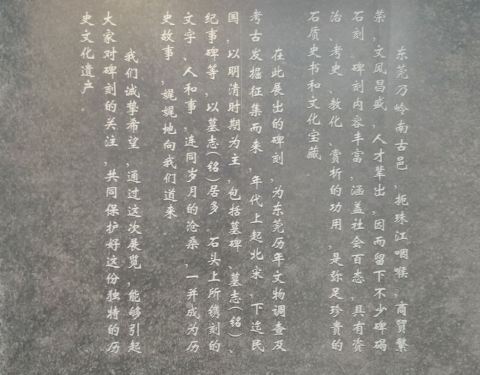 东莞乃岭南古邑，扼珠江咽喉，商贸繁
荣，文风昌盛，人才辈出，因而留下不少碑碣
石刻。碑刻内容丰富，涵盖社会百态，具有资
治、考史、教化、赏析的功用，是弥足珍贵的
石质史书和文化宝藏。
在此展出的碑刻，为东莞历年文物调查及
考古发掘征集而来，年代上起北宋，下迄民
国，以明清时期为主，包括墓碑、墓志(铭)、
纪事碑等，以墓志(铭)居多。石头上所镌刻的
文字、人和事，连同岁月的沧桑，一并成为历
史故事，娓娓地向我们道来。
我们诚挚希望，通过这次展览，能够引起
大家对碑刻的关注，共同保护好这份独特的历
史文化遗产。